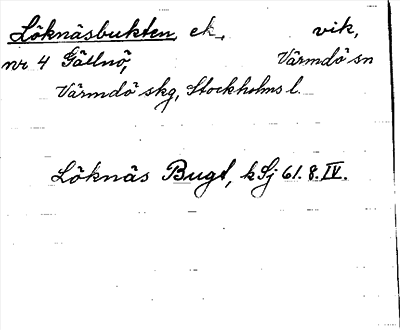 Löknäsbukten, ek., vik,
nr 4 Gällnö, Värmdö sn
Värmdö skg, Stockholms l.
Löknäs Bugt, k Sj 61. 8. IV.